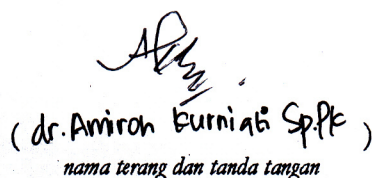 ( dr. Amiroh Kurniati Sp.PK )
nama terang dan tanda tangan